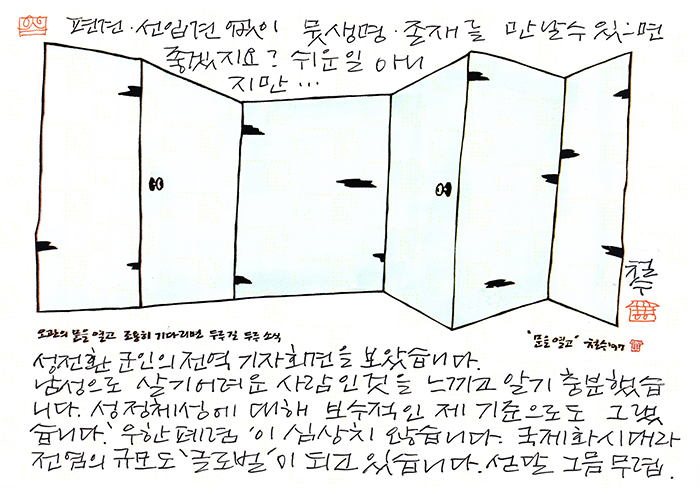 편견·선입견 없이 뭇생명·존재를 만날수 있으면
좋겠지요? 쉬운일 아니
지만...
철수
오관의 문을 열고 조용히 기다리면 두두 두두 소식
"문을 열고" 철수 '97
성전환 군인의 전역 기자회견을 보았습니다.
남성으로 살기 어려운 사람인 것을 느끼고 알기 충분했습
니다. 성정체성에 대해 보수적인 제 기준으로도 그랬
습니다. '우한폐렴'이 심상치 않습니다. 국제화시대라
전염의 규모도 '글로벌'이 되고 있습니다. 섣달 그믐 무렵.